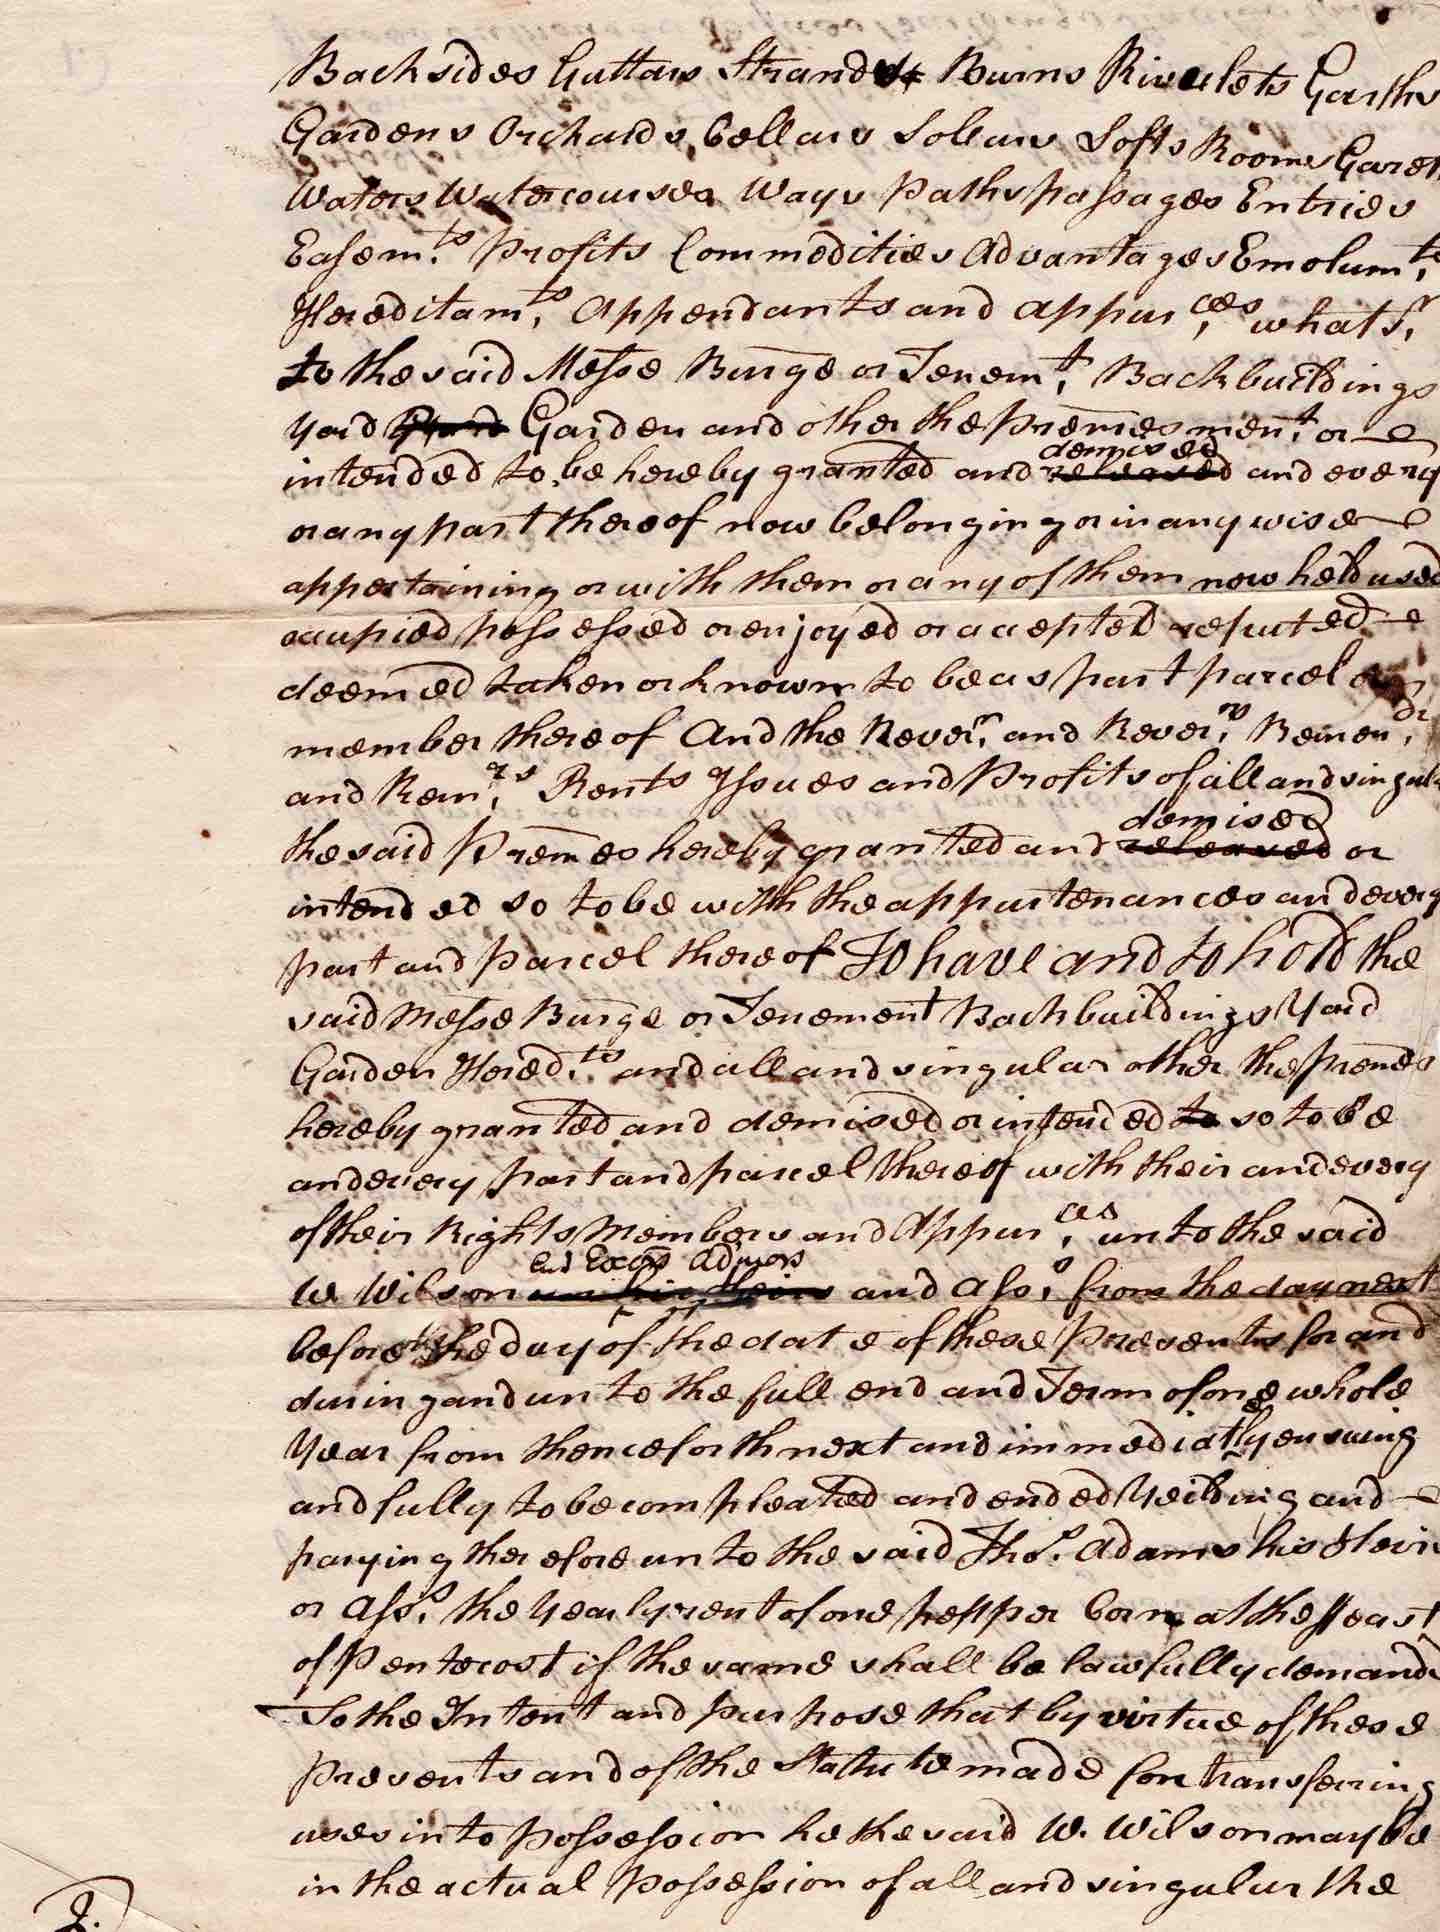 Backsides Guttars Strands Burns Rivulets Garths
Gardens Orchards, Cellars Sollars Lofts Rooms Garets
Waters Watercourses Ways Paths passages Entries
Easem.ts Profits Commodities Advantages Emolum.ts
Hereditam.ts Appendants and appur.ces whats.r
to the said Messe Burge or Tenem.t Backbuildings
Yard Garden and other the premes ment.d or
demised
intended to be hereby granted and released and every
or any part thereof now belonging or in any wise
appertaining or with them or any of them now held used
occupied possessed or enjoyed or accepted reputed
deemed taken or known to be as part parcel or
member thereof And the Rever.n and Rever.ns Remen.dr
and Rem.rs Rents Issues and Profits of all and singular
demised
the said Premes hereby granted and released or
intended so to be with the appurtenances and every
part and parcel thereof To have and to hold the
said Messe Burge or Tenement Backbuildings Yard
Garden Hered.ts and all and singular other the premes
hereby granted and demised or intended to so to be
and every part and parcel thereof with their and every
of their Rights Members and Appur.ces unto the said
Exors Admors
W Wilson his heirs and Ass.s from the day next
before the day of the date of these Presents for and
during and unto the full end and Term of one whole
Year from thenceforth next and immediatly ensuing
and fully to be compleated and ended Yeilding and
paying therefore unto the said Tho.s Adams his Heirs
or Ass.s the Yearly rent of one pepper Corn at the Feast
of Pentecost if the same shall be lawfully demanded
To the Intent and purpose that by virtue of these
Presents and of the Statute made for transferring
uses into Possession he the said W. Wilson may be
in the actual Possession of all and singular the
2.